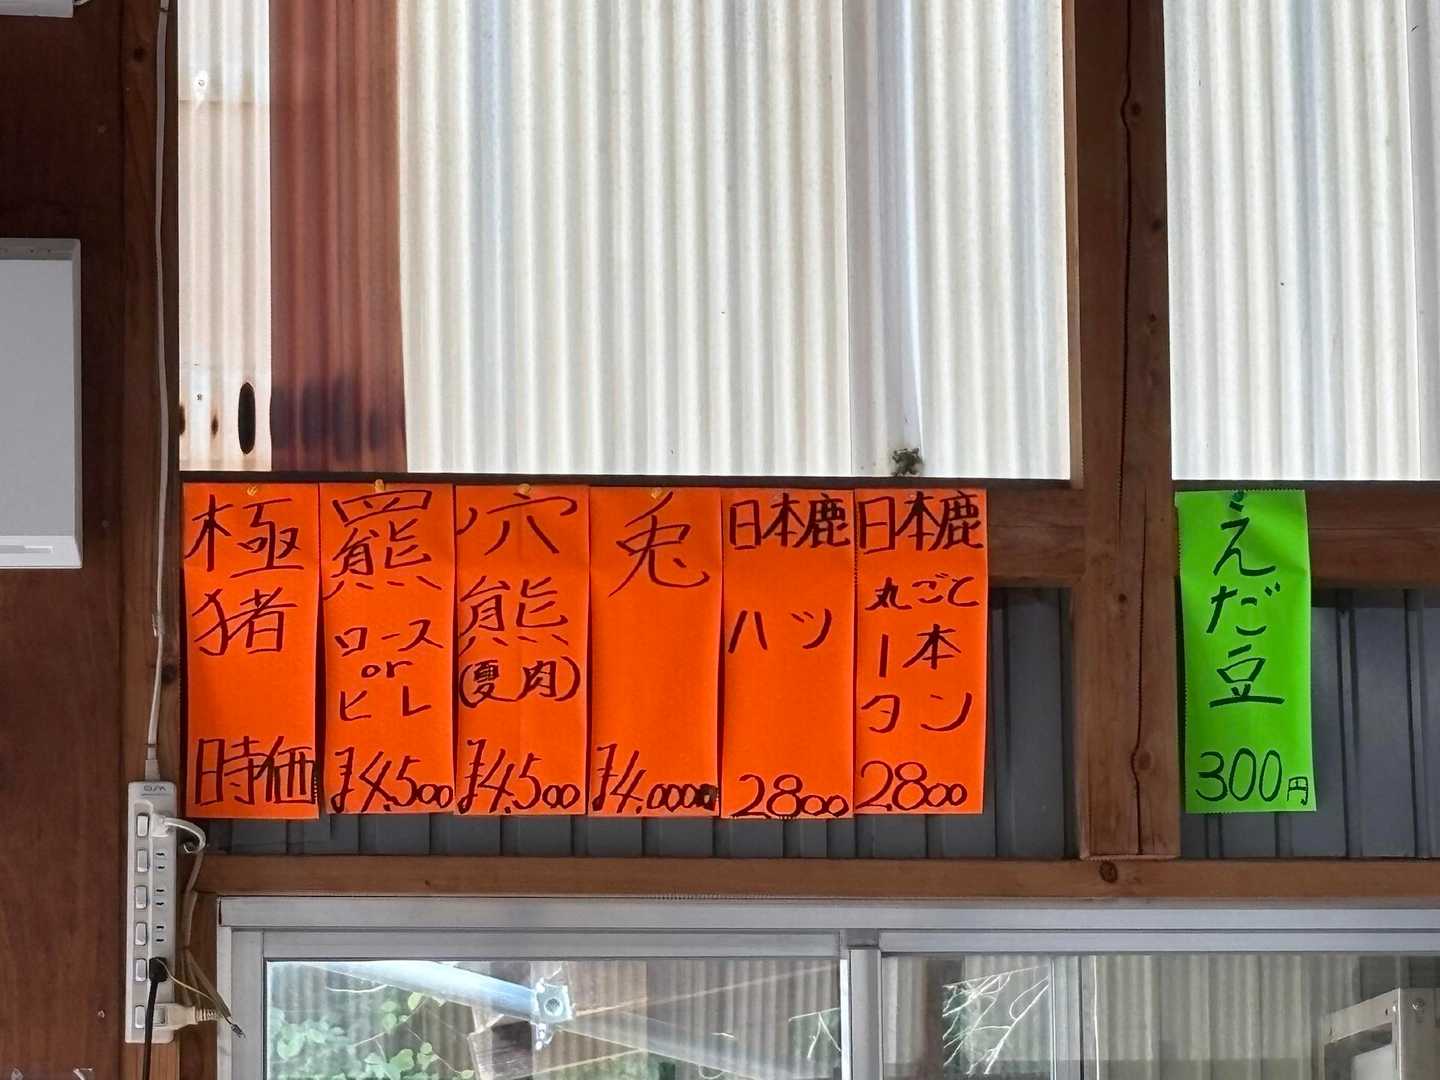 極猪
時価
羆
ロース
or
ヒレ
¥4.500
穴熊
(夏肉)
¥4.500
兎
¥4.000
日本鹿
ハツ
2800
日本鹿
丸ごと
一本
タン
2.800
えだ豆
300円